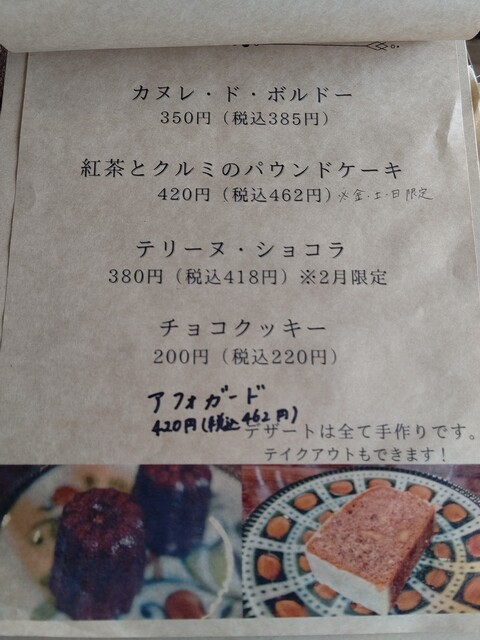 カヌレ・ド・ボルドー
350円（税込385円）
紅茶とクルミのパウンドケーキ
420円（税込462円）※金・土・日限定
テリーヌ・ショコラ
380円（税込418円）※2月限定
チョコクッキー
200円（税込220円）
アフォガード
420円(税込462円)
デザートは全て手作りです。
テイクアウトもできます！